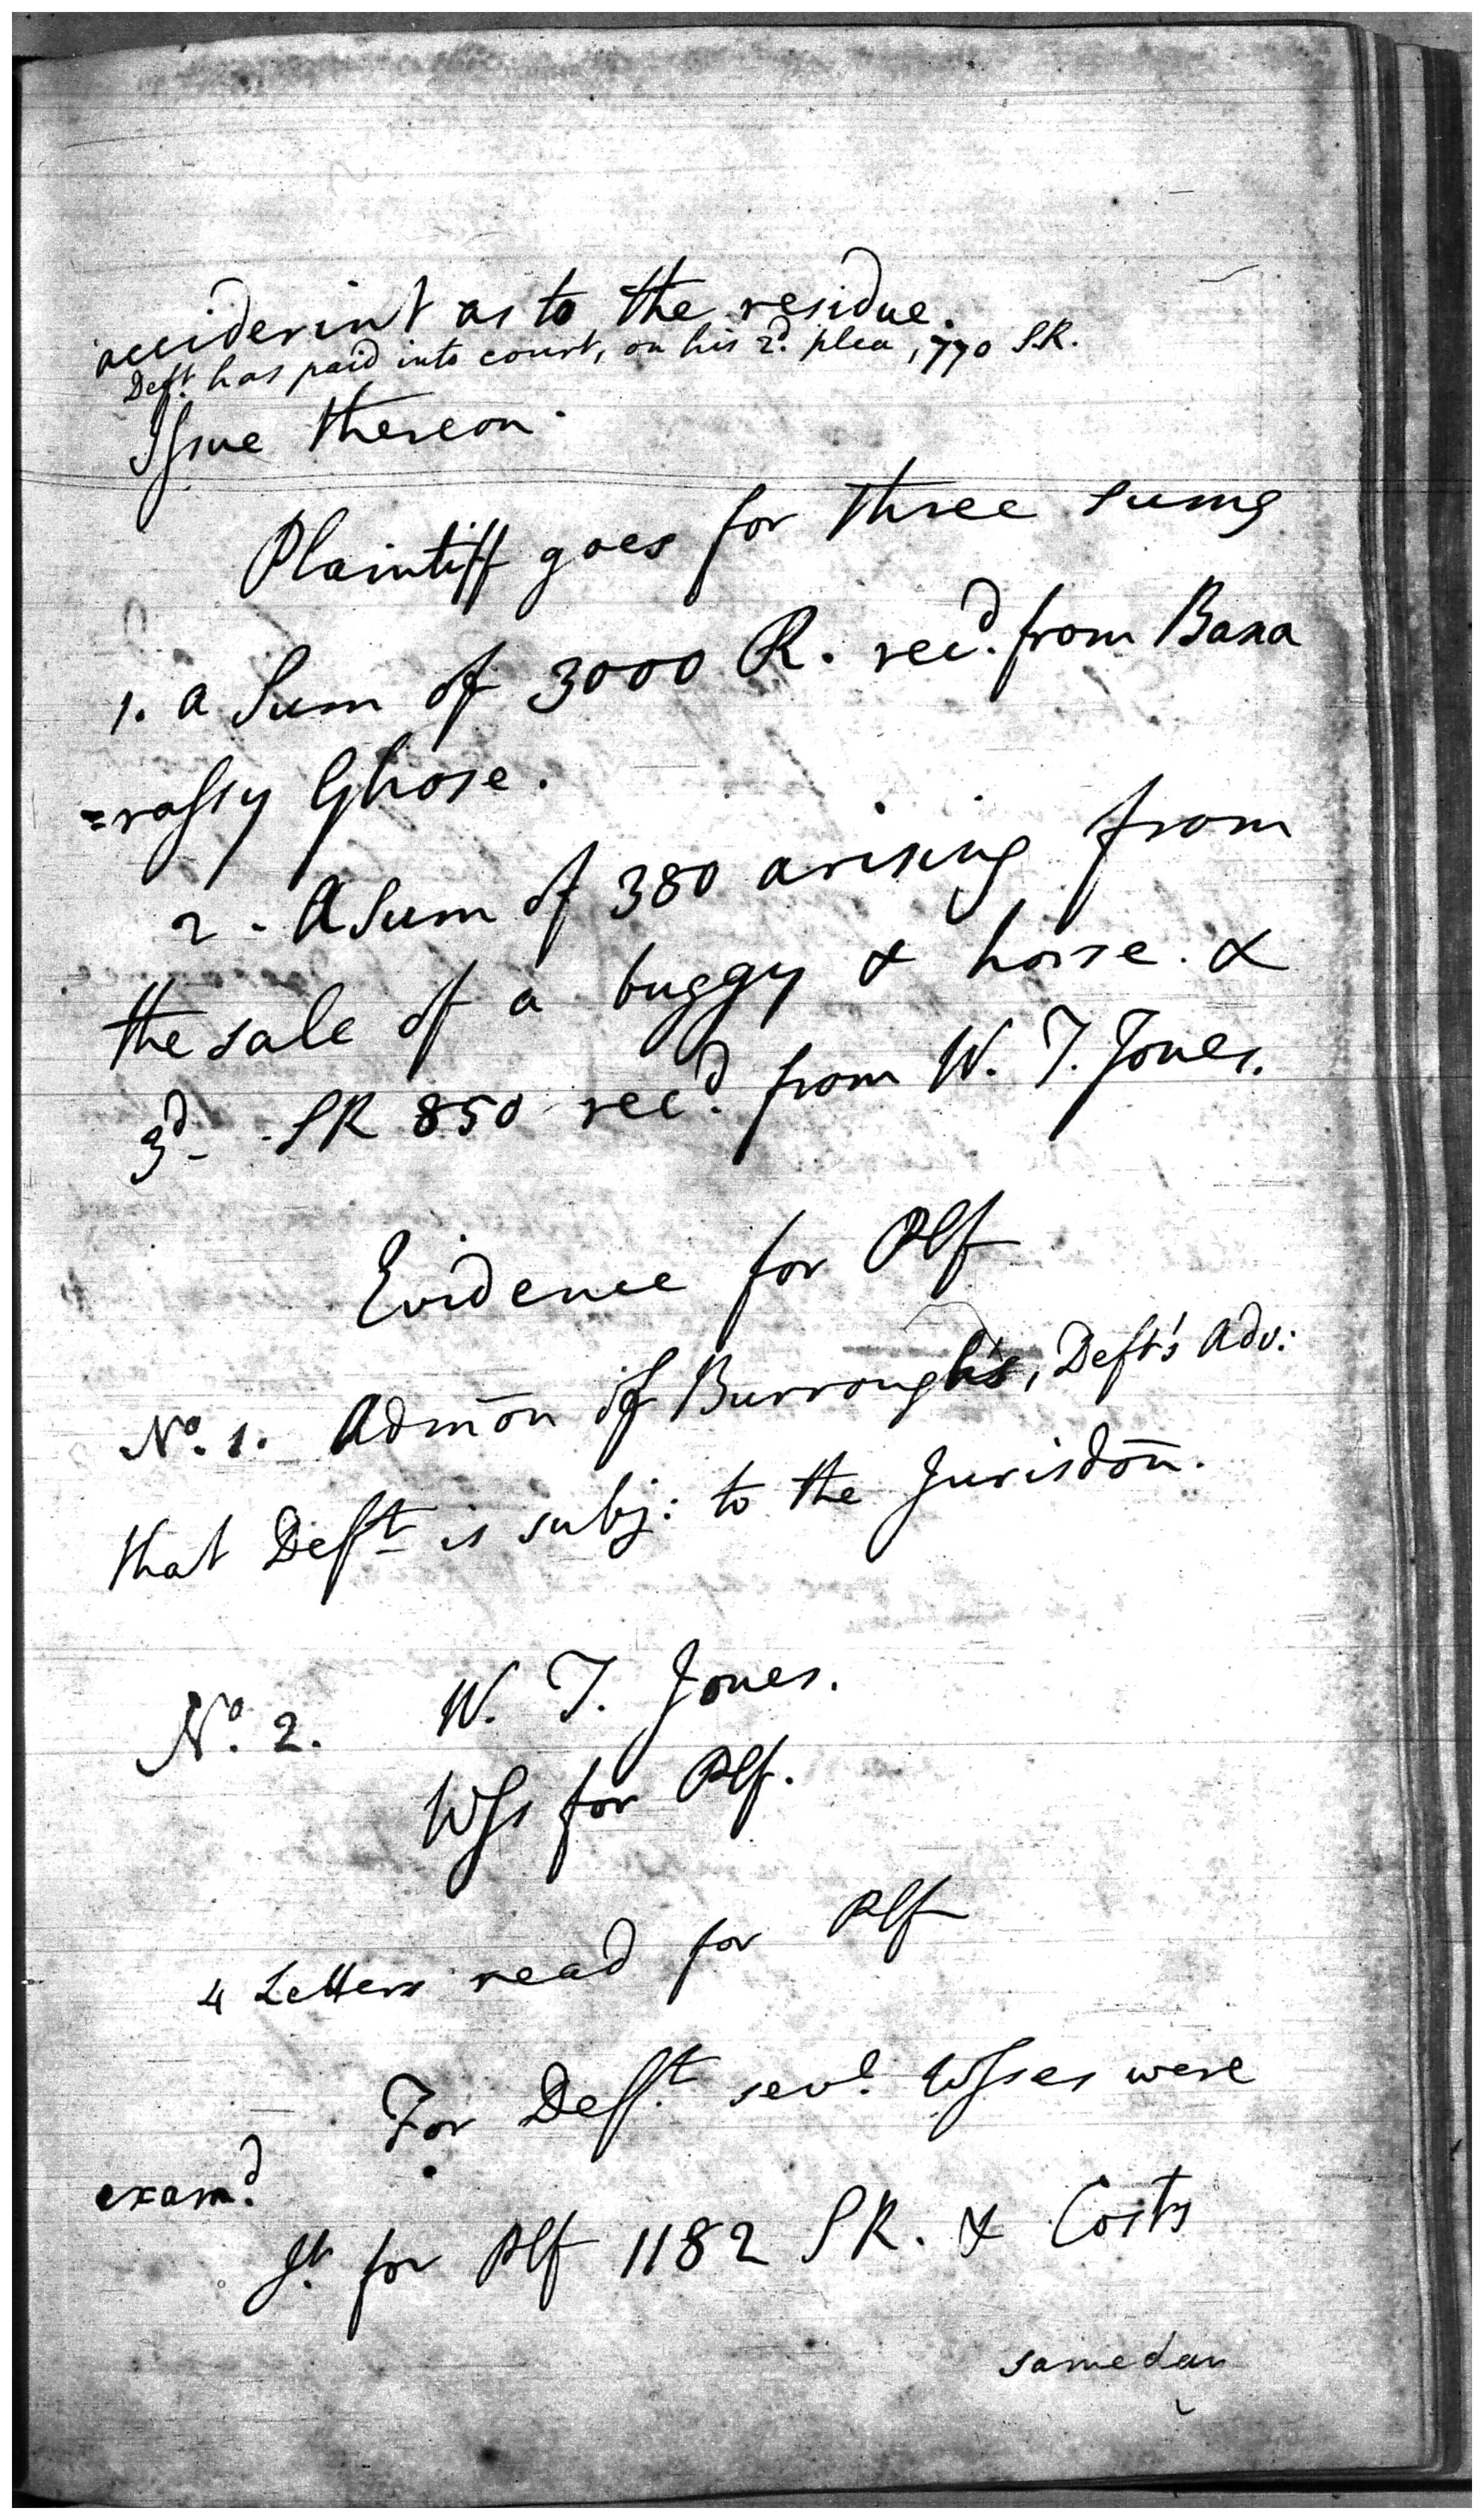 acciderint as to the residue.
Deft. has paid into court, on his 2d. plea, 770 SR.
Issue thereon.
Plaintiff goes for three sums
1. a Sum of 3000 R. recd. from Bana
=rassy Ghose.
2 - A Sum of 380 arising from
the sale of a buggy & horse. &
3d - SR 850 recd. from W. T. Jones.
Evidence for Plf
No. 1. Admōn of Burroughs, Deft's Adv:
that Deft is subj: to the Jurisdōn.
No. 2. W. T. Jones.
Wss for Plf.
4 Letters read for Plf
For Deft. sevl. Wsses were
examd.
Jt. for Plf 1182 SR. & Costs
same day